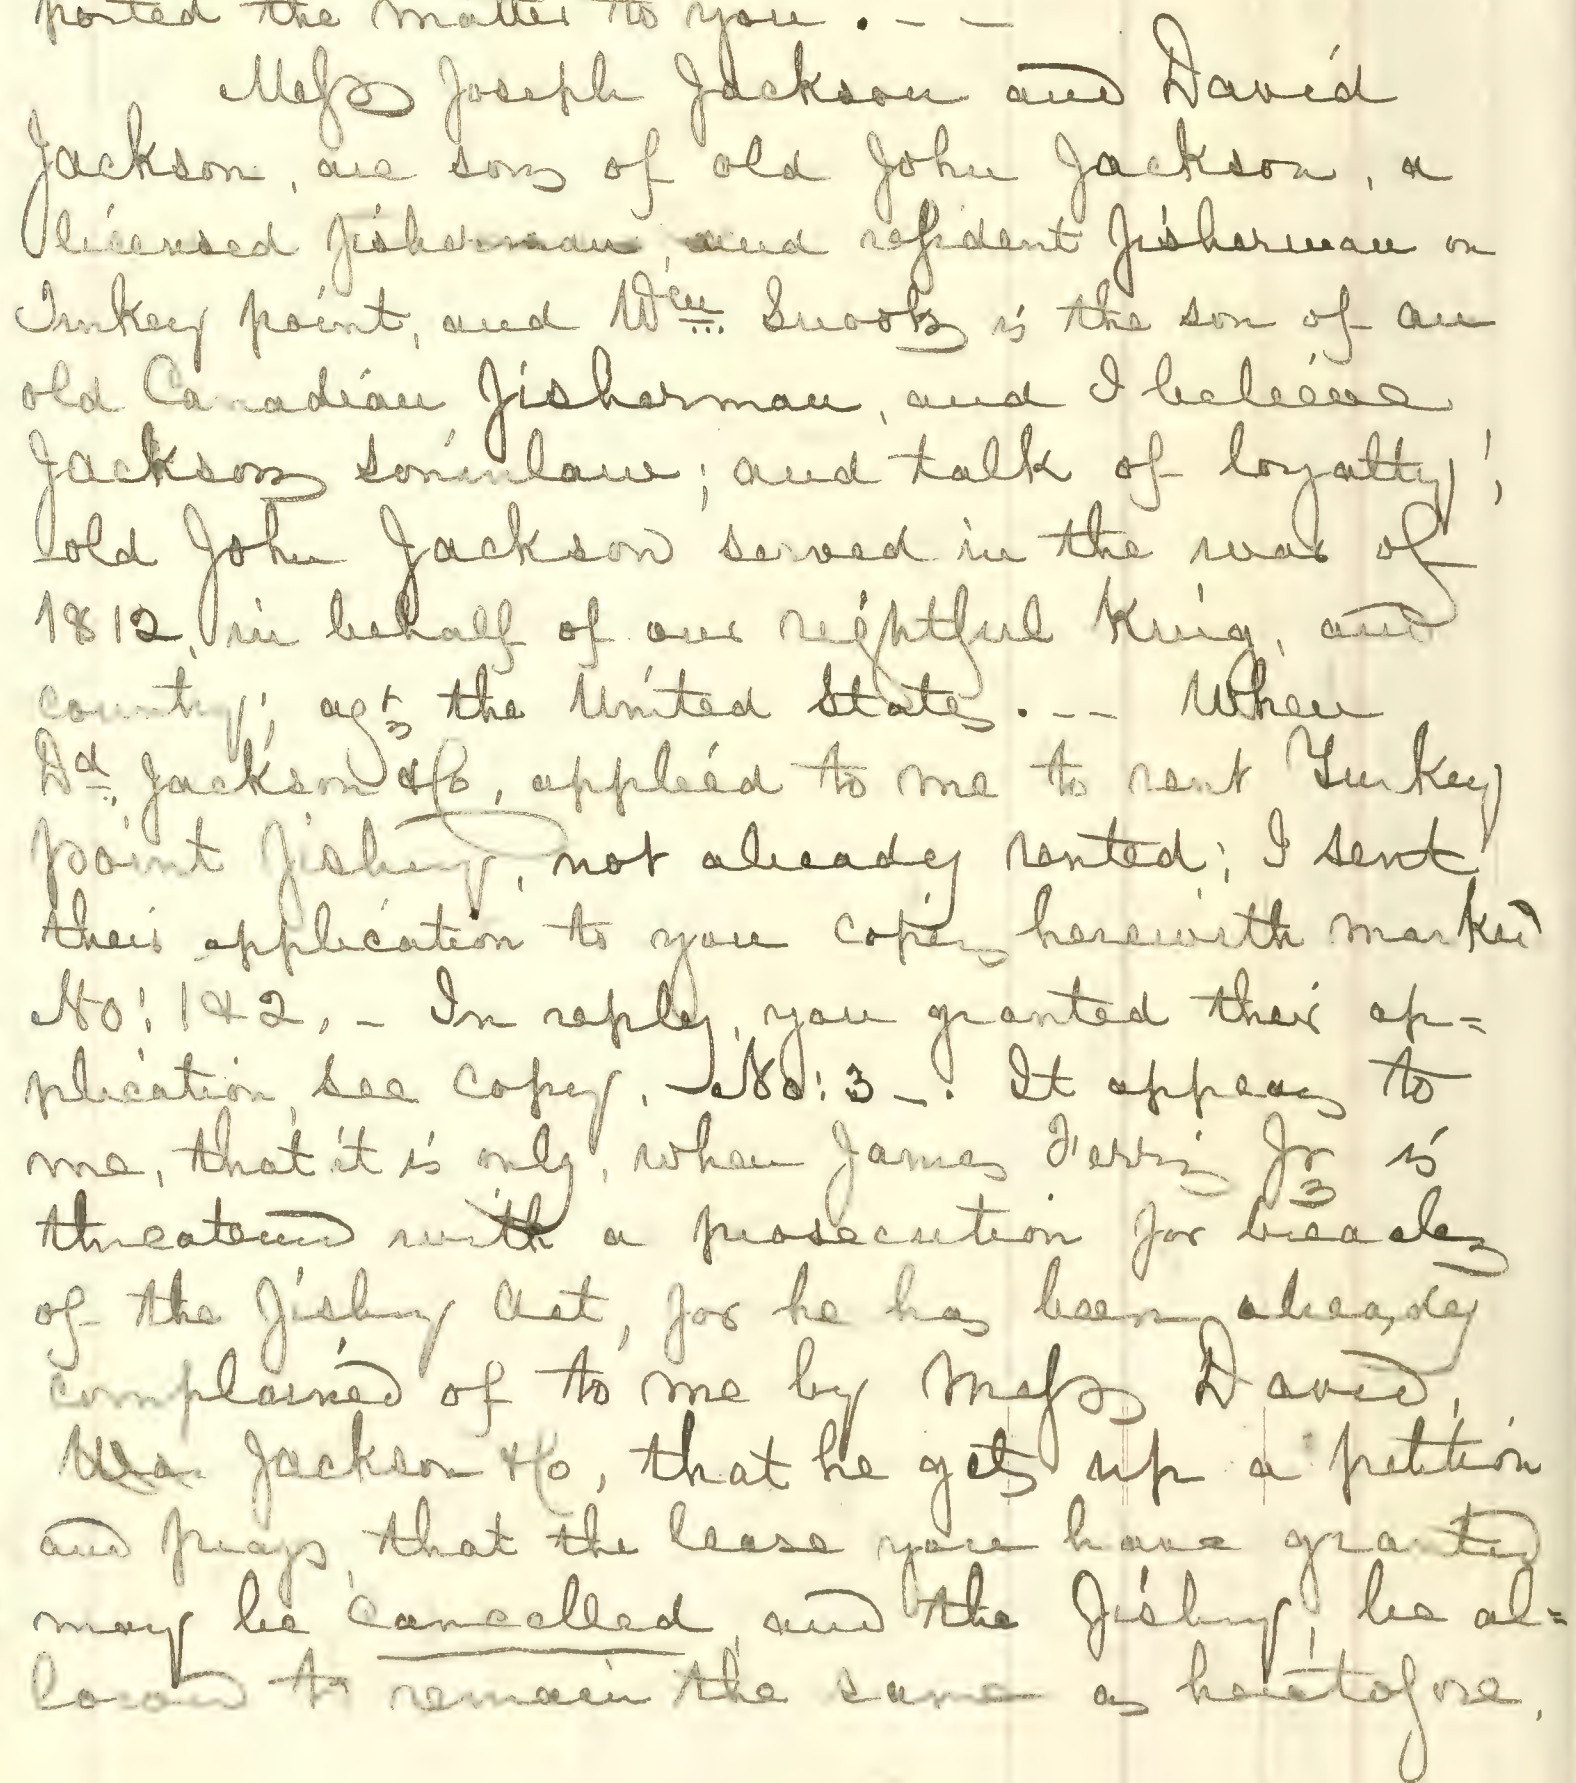 ported the matter to you. - -
Messrs Joseph Jackson and David
Jackson, are sons of old John Jackson, a
licensed fisherman, and resident fisherman on
Turkey point, and Wm Snooks is the son of an
old Canadian fisherman, and I believe
Jacksons soninlaw; and talk of loyalty;
old John Jackson served in the war of
1812, in behalf of our rightful King, and
country; agt the United States. -- When
Dd Jackson & Co, applied to me to rent Turkey
point fishery, not already rented; I sent
their application to you copies herewith marked
No: 1 & 2, - In reply, you granted their ap=
plication, see copy. - No: 3 -. It appears to
me, that it is only, when James Ferris Jr is
threatened with a prosecution for breaches
of the fishery Act, for he has been already
complained of to me by Messrs David,
Jackson & Co, that he gets up a petition
and prays, that the lease you have granted
may be cancelled, and the fishery, be al=
lowed to remain the same as heretofore,